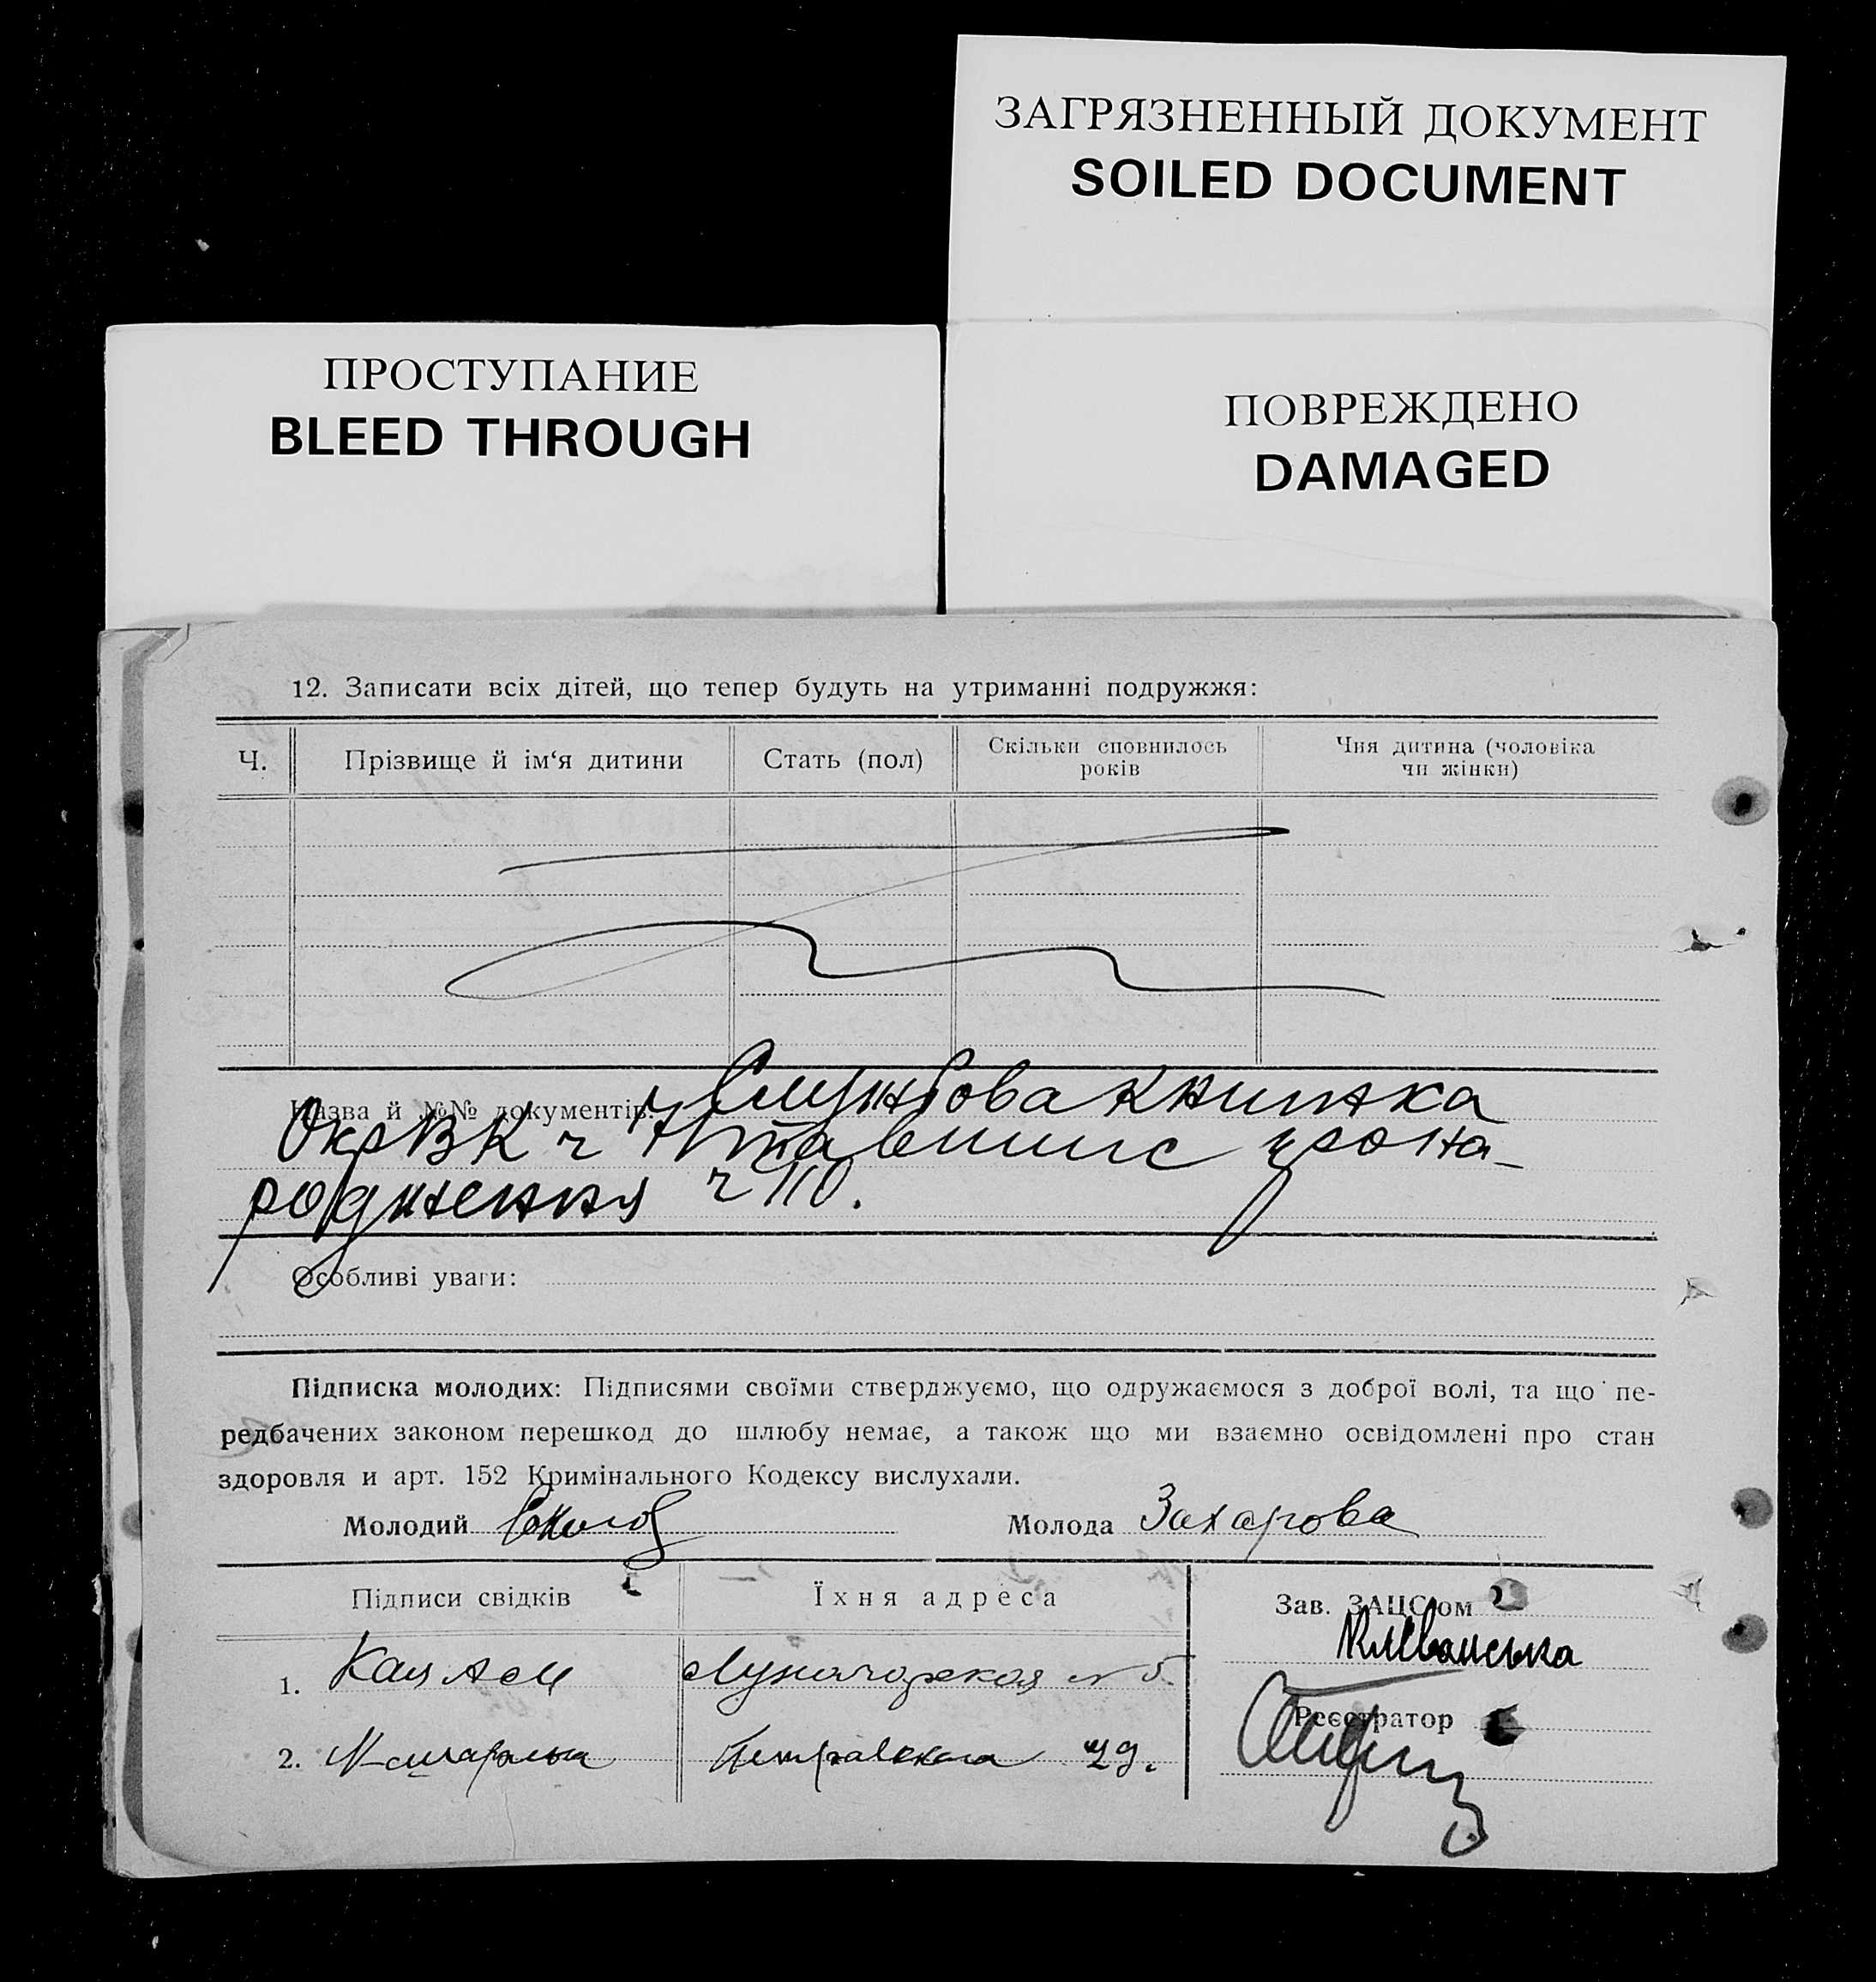 ЗАГРЯЗНЕННЫЙ ДОКУМЕНТ
SOILED DOCUMENT
ПРОСТУПАНИЕ
BLEED THROUGH
ПОВРЕЖДЕНО
DAMAGED
12. Записати всіх дітей, що тепер будуть на утриманні подружжя:
Ч. Прізвище й ім‘я дитини Стать (пол) Скільки сповнилось років Чия дитина (чоловіка чи жінки)
Назва й №№ документів: Службова книжка
ОкрВК ч
родження ч 110.
Особливі уваги:
Підписка молодих: Підписями своїми стверджуємо, що одружаємося з доброї волі, та що пе-
редбачених законом перешкод до шлюбу немає, а також що ми взаємно освідомлені про стан
здоровля и арт. 152 Кримінального Кодексу вислухали.
Молодий Молода Захарова
Підписи свідків Їхня адреса Зав. ЗАЦС‘ом
1. № 5
Реєстратор
2. 29.